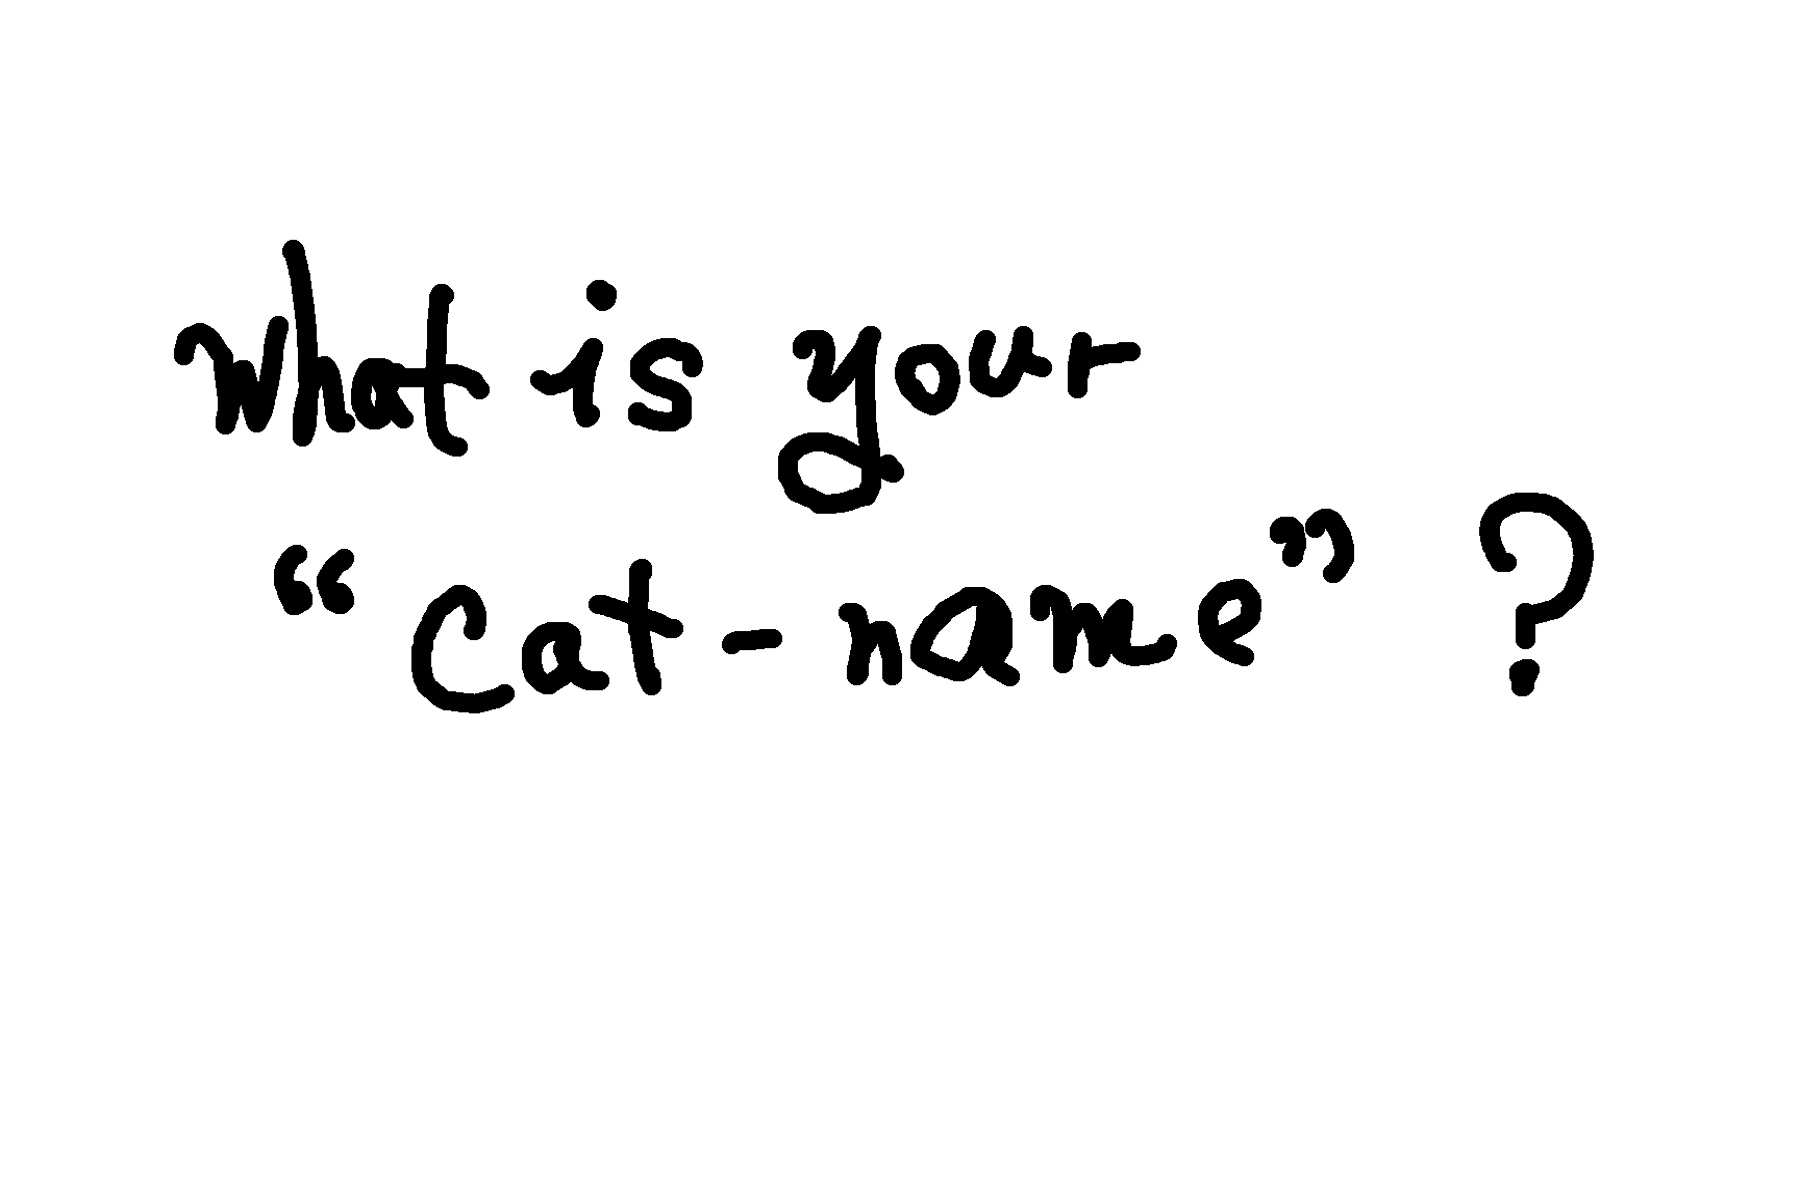 What is your
“Cat-name” ?